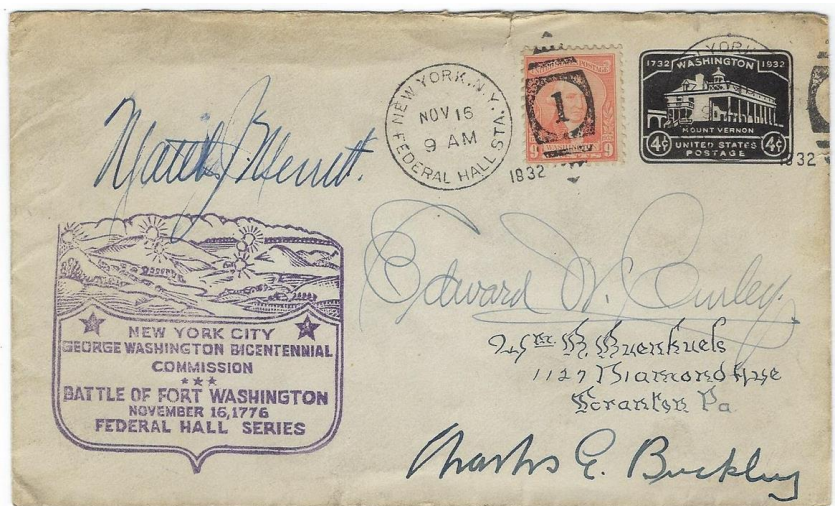 NEW YORK, N.Y.
NOV 16
9 AM
FEDERAL HALL STA.
1932
1
9 WASHINGTON 9
1732 WASHINGTON 1932
MOUNT VERNON
4¢ UNITED STATES 4¢
POSTAGE
1932
J. Merritt.
NEW YORK CITY
GEORGE WASHINGTON BICENTENNIAL
COMMISSION
BATTLE OF FORT WASHINGTON
NOVEMBER 16, 1776
FEDERAL HALL SERIES
Edward W. Curley
Wm. H.
1127 Diamond Ave
Scranton Pa
Charles E. Buckley